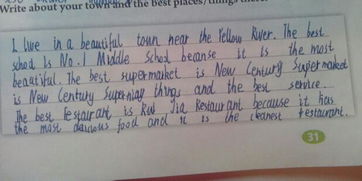 Write about your town and the best places/things there.
I live in a beautiful town near the Yellow River. The best
school is No.1 Middle School because it is the most
beautiful. The best supermarket is New Century Supermarket
is New Century Supermap things and the best service.
The best Restaurant is Jia Restaurant because it has
the most food and it is the cleanest restaurant.
31